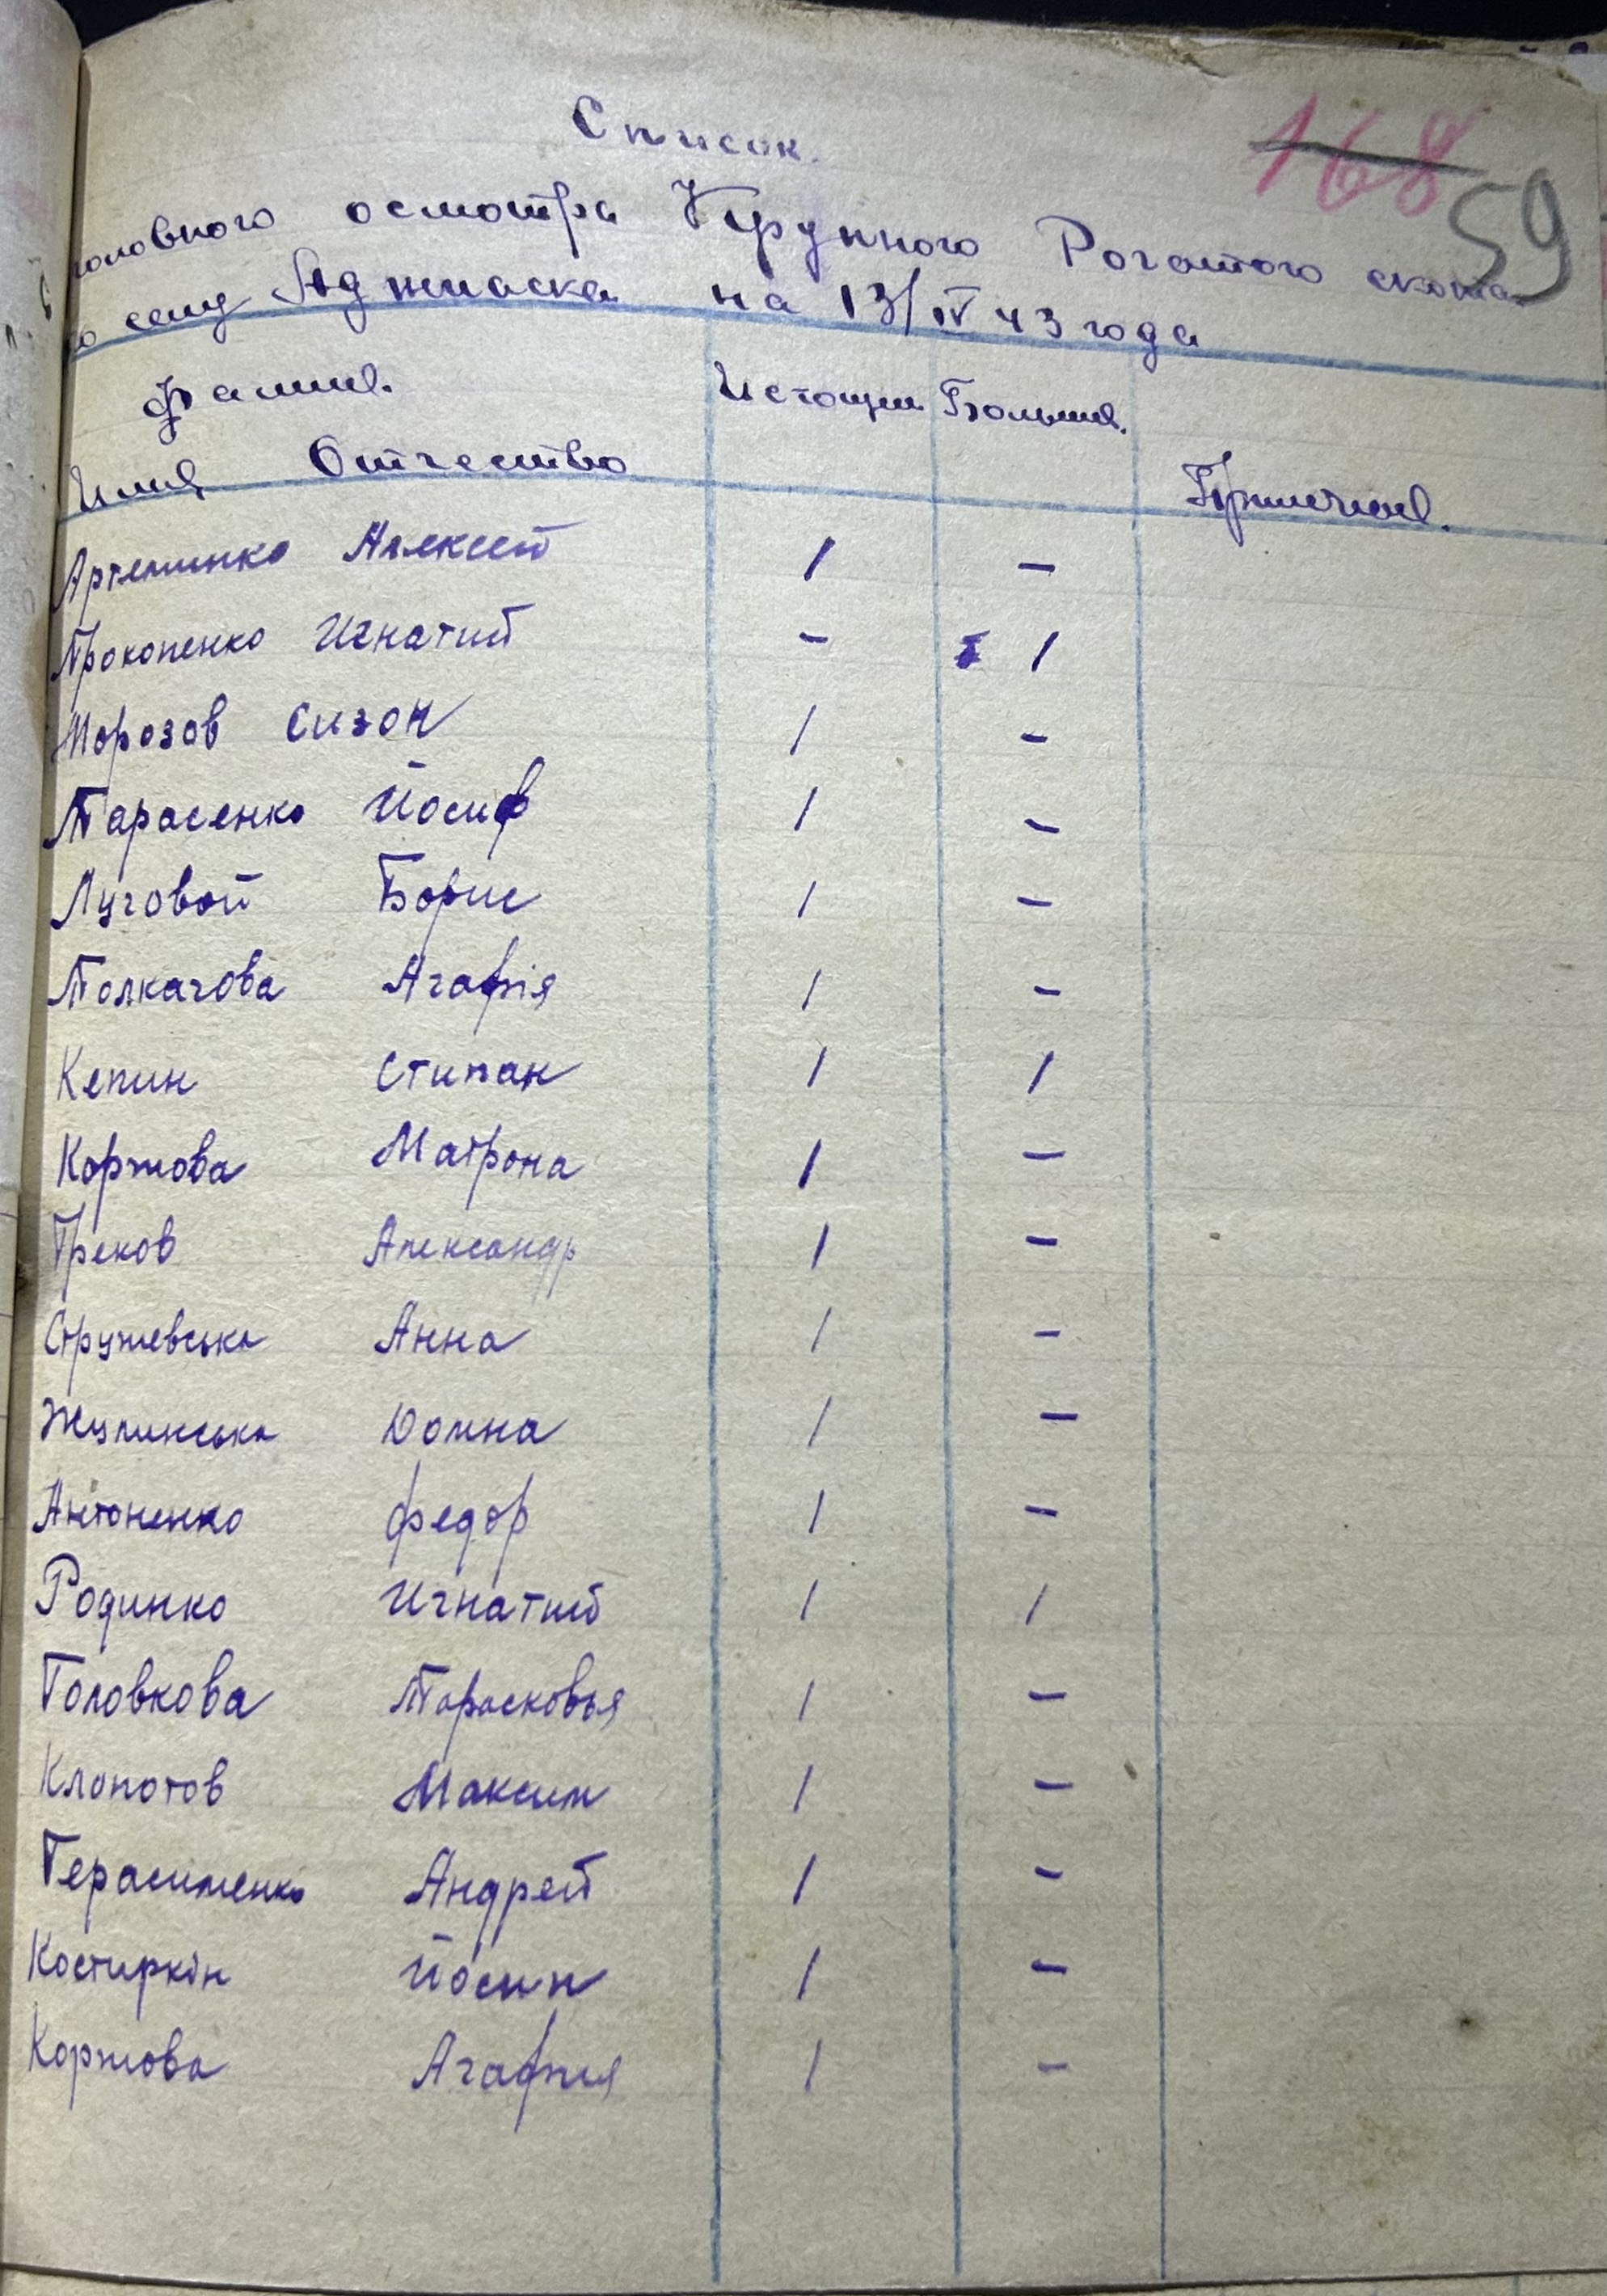 Список.
168 59
головного осмотра Крупного Рогатого скота
по селу Аджиаска на 13/IV 43 года
Фамил. Истощен. Больных.
Имя Отчество Примечан.
Артеминко Алексей 1 –
Прокопенко Игнатий – 1
Морозов Сизон 1 –
Тарасенко Йосиф 1 –
Луговой Борис 1 –
Толкачова Агафія 1 –
Кепин Стипан 1 1
Коржова Матрона 1 –
Греков Александр 1 –
Стружевська Анна 1 –
Жулинська Домна 1 –
Антоненко Федор 1 –
Родинко Игнатий 1 1
Головкова Парасковья 1 –
Клопотов Максим 1 –
Герасименко Андрей 1 –
Костиркін Йосип 1 –
Коржова Агафия 1 –